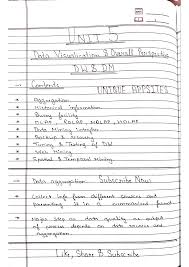 UNIT 5
Data Visualization & Overall Perspective
DW & DM
Contents
UNIQUE APPSITES
Aggregation
Historical information
Query facility
OLAP, ROLAP, MOLAP, HOLAP
Data Mining interface
Backup & recovery
Tuning & Testing of DW
Web Mining
Spatial & Temporal Mining
Data aggregation Subscribe Now!
Collect info from different sources and
presenting it in a summarized format
Major step as data quality as output
of process depends on data sources and
aggregation
Like, Share & Subscribe